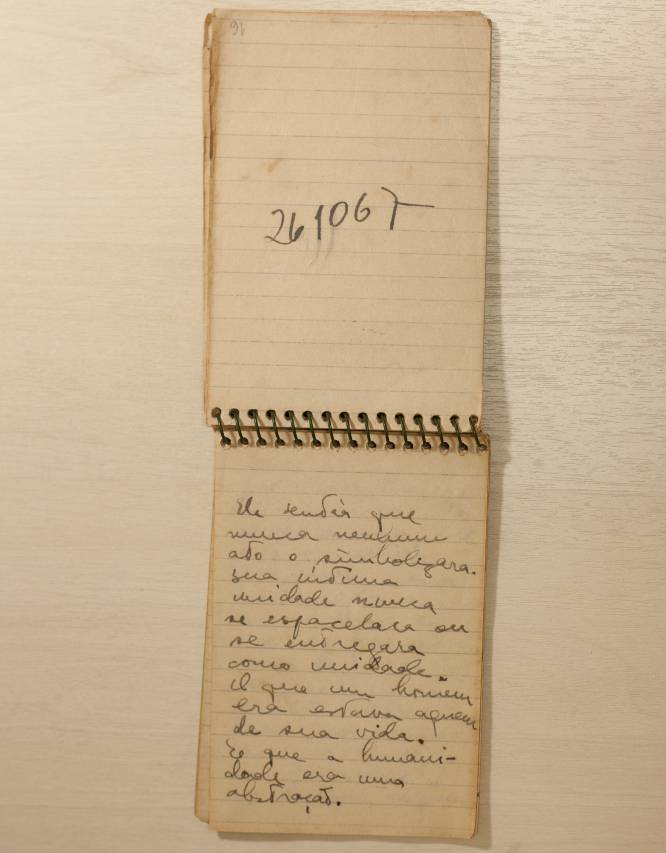 91
261067
Ele sentia que
nunca nenhum
ato o simbolizara.
sua íntima
unidade nunca
se espacelara ou
se entregara
como unidade.
E que um homem
era estava aquem
de sua vida.
E que a humani-
dade era uma
abstração.